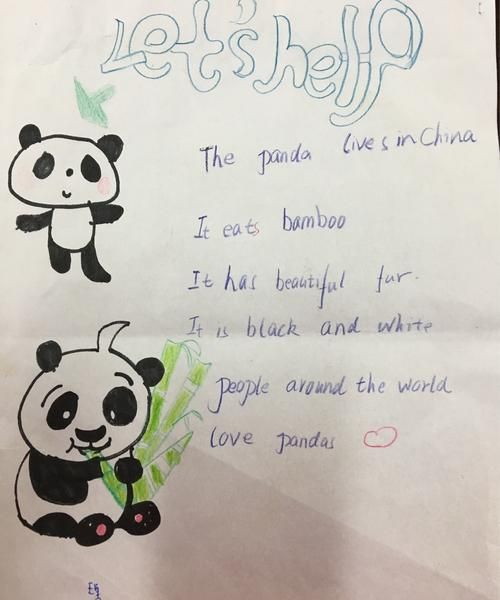 Let's help
The panda lives in China
It eats bamboo
It has beautiful fur.
It is black and white
people around the world
love pandas